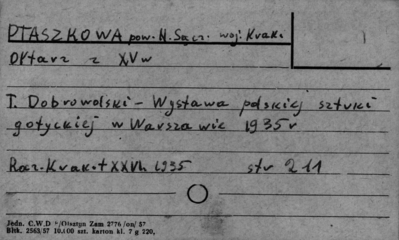 PTASZKOWA pow. N. Sącz. woj. Krak.
Ołtarz z XV w
T. Dobrowolski - Wystawa polskiej sztuki
gotyckiej w Warszawie 1935 r
Rocz. Krak. t XXVI 1935 str 211
Jedn. C.W.D /Olsztyn Zam 2776 /on/ 57
Błtk. 2563/57 10.000 szt. karton kl. 7 g 220,